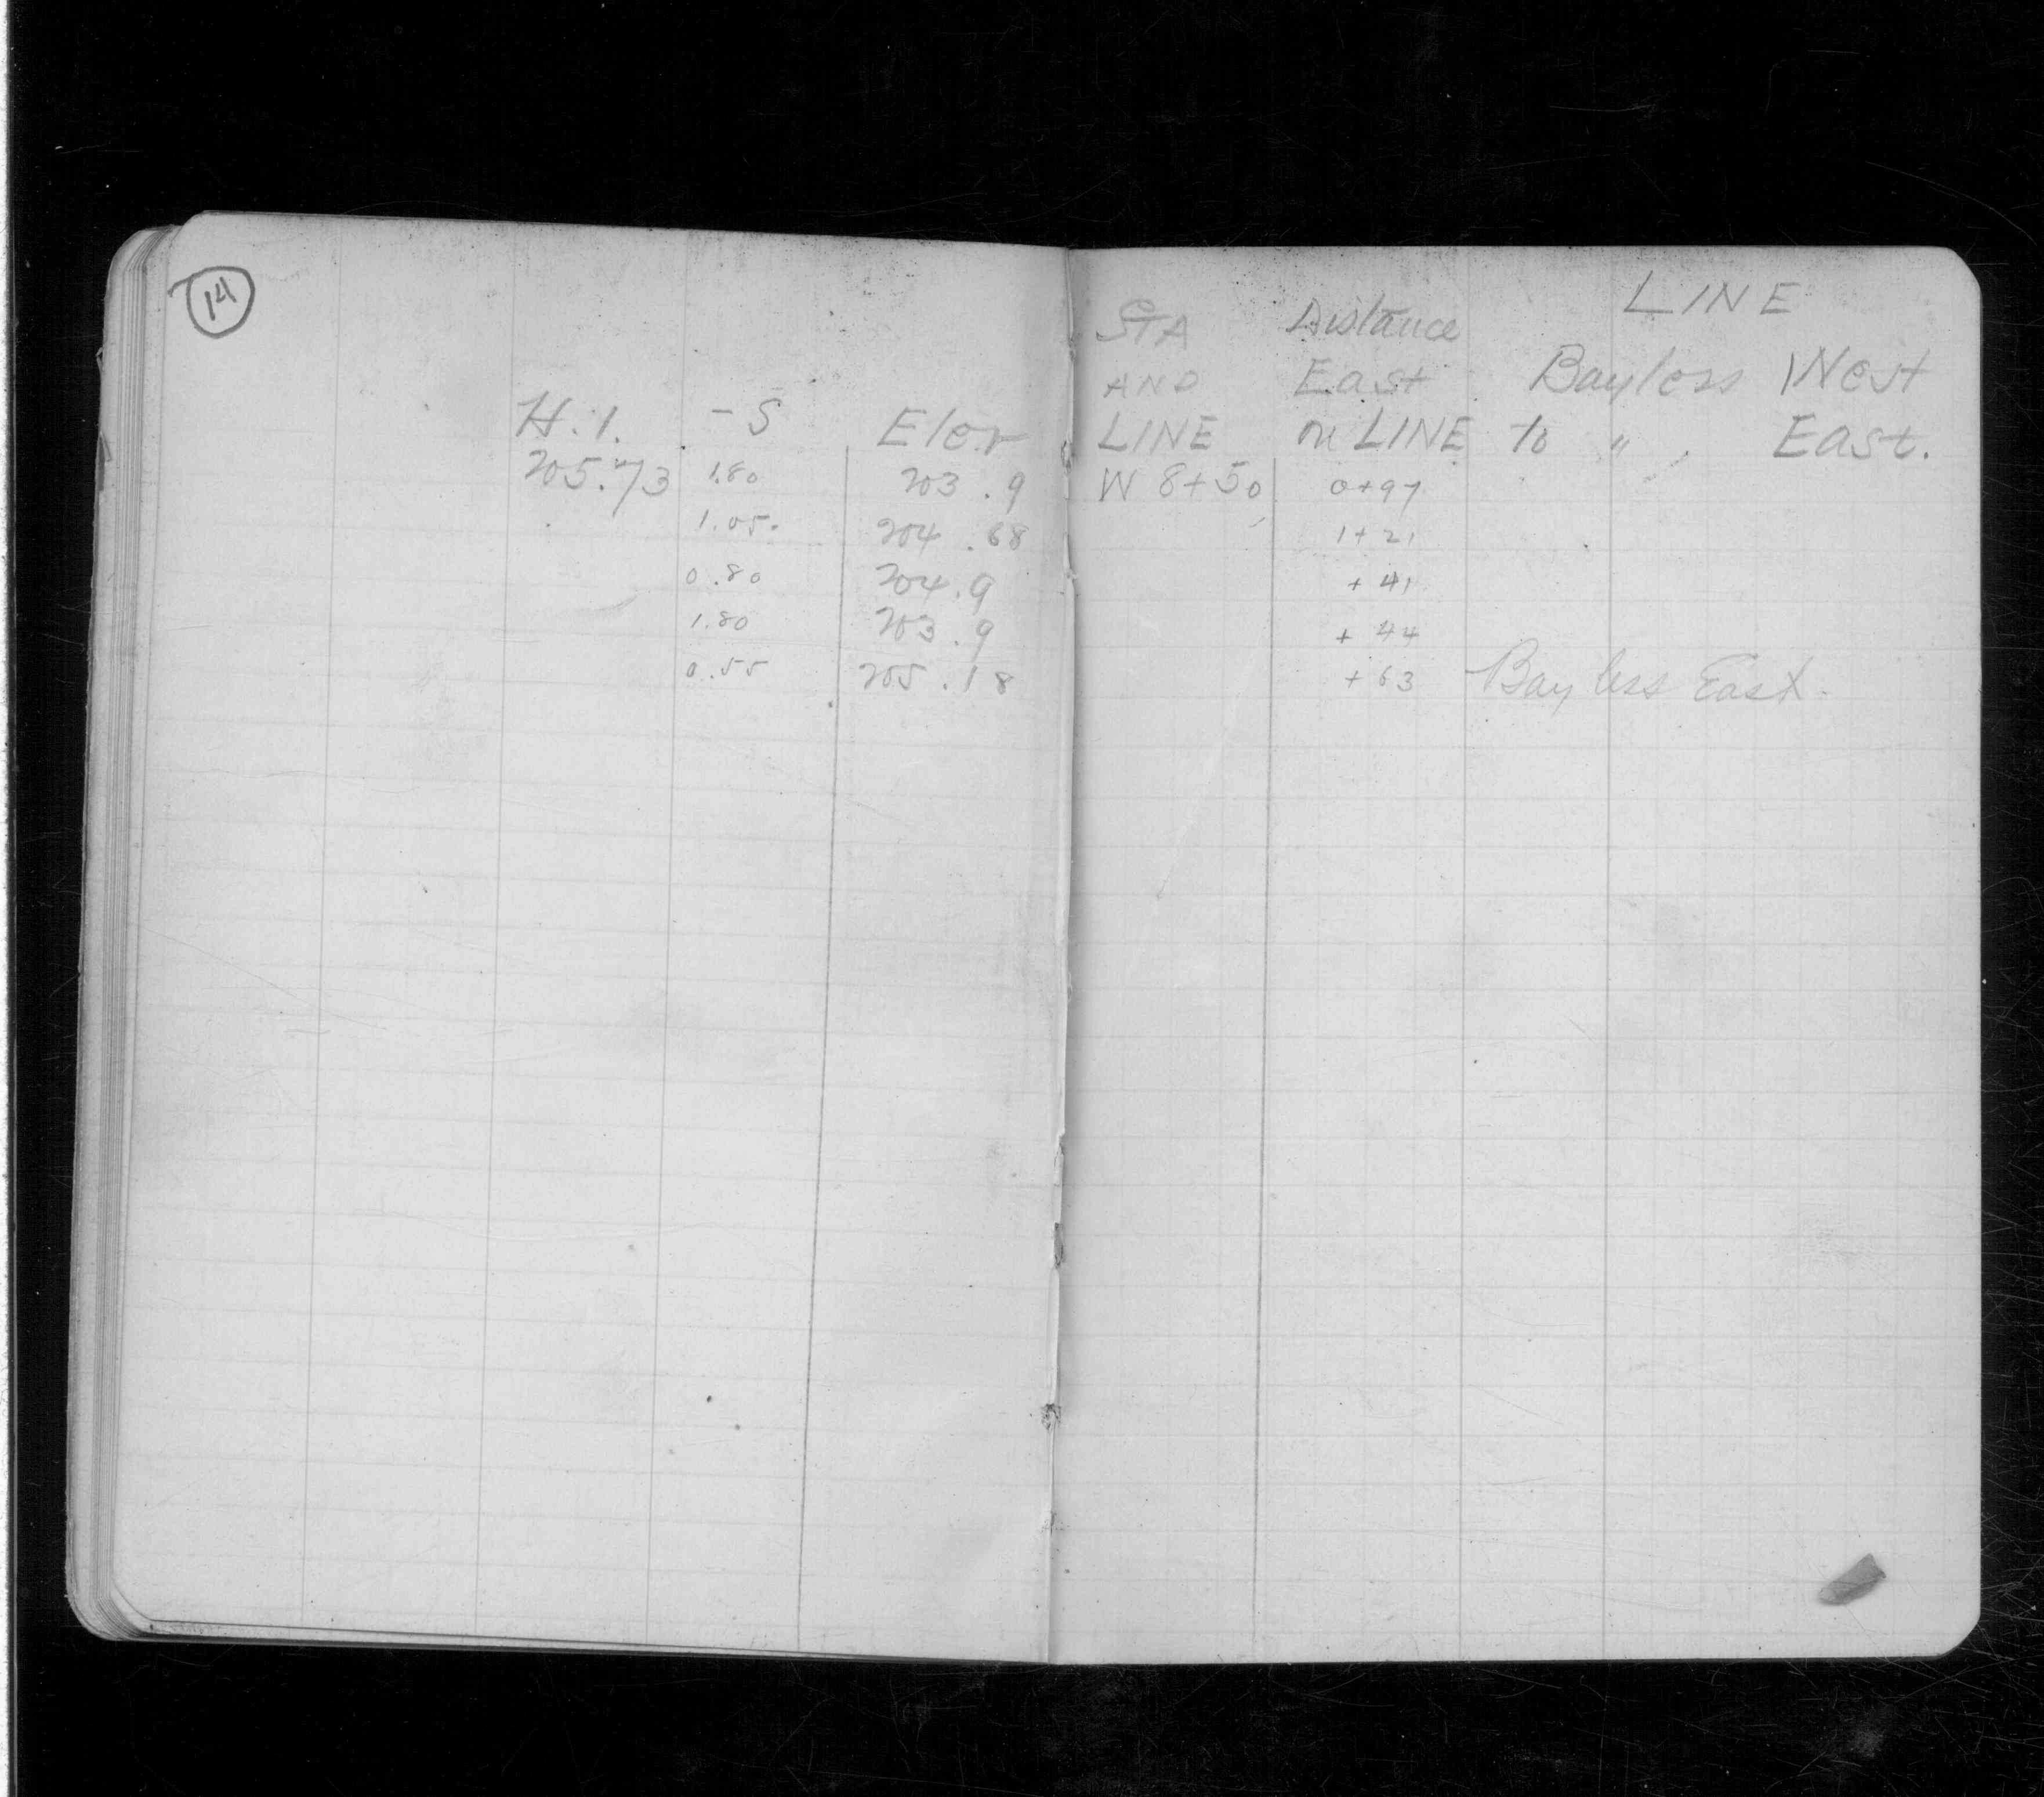 14
H.I. -S Elev
205.73 1.80 203.9
1.05 204.68
0.80 204.9
1.80 203.9
0.55 205.18
LINE
STA Distance
AND East Bayless West
LINE on LINE to " , East.
W 8+50 0+97
1+21
+ 41
+ 44
+ 63 Bayless East.